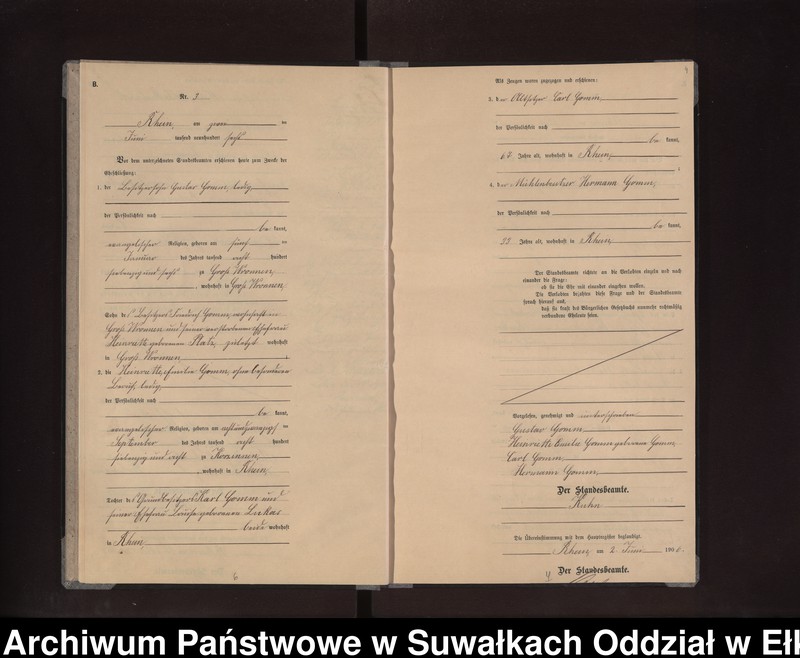 B.
Nr. 3
Rhein, am zwei ten
Juni tausend neunhundert sechs
Vor dem unterzeichneten Standesbeamten erschienen heute zum Zwecke der
Eheschließung:
1. der Besitzersohn Gustav Gomm, ledig,
der Persönlichkeit nach
be kannt,
evangelischer Religion, geboren am fünf ten
Januar des Jahres tausend acht hundert
siebenzig und sechs zu Groß Wronnen,
, wohnhaft in Groß Wronnen,
Sohn des Besitzers Friedrich Gomm, wohnhaft in
Groß Wronnen und seiner verstorbenen Ehefrau
Heinriette geborenen Platz, zuletzt wohnhaft
in Groß Wronnen
2. die Heinriette Emilie Gomm, ohne besonderen
Beruf, ledig,
der Persönlichkeit nach
be kannt,
evangelischer Religion, geboren am achtundzwanzigsten
September des Jahres tausend acht hundert
siebenzig und acht zu
, wohnhaft in Rhein,
Tochter des Grundbesitzers Karl Gomm und
seiner Ehefrau Louise geborenen Lukas
beide wohnhaft
in Rhein,
6
Als Zeugen waren zugezogen und erschienen:
3. der Altsitzer Carl Gomm,
der Persönlichkeit nach
be kannt,
Jahre alt, wohnhaft in Rhein,
4. der Mühlenbesitzer Hermann Gomm,
der Persönlichkeit nach
be kannt,
Jahre alt, wohnhaft in Rhein
Der Standesbeamte richtete an die Verlobten einzeln und nach
einander die Frage:
ob sie die Ehe mit einander eingehen wollen.
Die Verlobten bejahten diese Frage und der Standesbeamte
sprach hierauf aus,
daß sie kraft des Bürgerlichen Gesetzbuchs nunmehr rechtmäßig
verbundene Eheleute seien.
Vorgelesen, genehmigt und unterschrieben
Gustav Gomm,
Heinriette Emilie Gomm geborene Gomm
Carl Gomm,
Hermann Gomm,
Der Standesbeamte.
Kuhn
Die Übereinstimmung mit dem Hauptregister beglaubigt.
Rhein, am 2. Juni 1906.
Der Standesbeamte.
Archiwum Państwowe w Suwałkach Oddział w Ełk